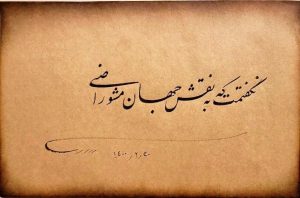 نگفتمت که به نقش جهان مشو راضی
۱۴۰۰/۲/۳۰